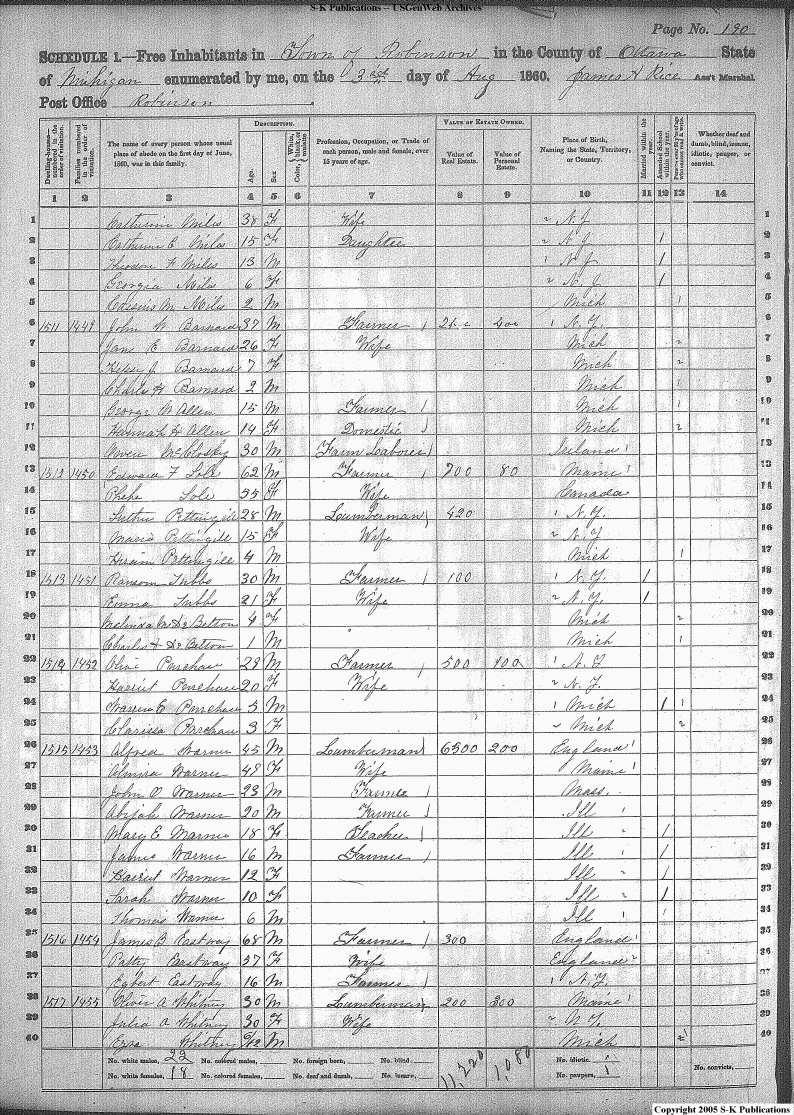 S-K Publications – USGenWeb Archives
Page No. 190
SCHEDULE 1.—Free Inhabitants in Town of Robinson in the County of Ottawa State
of Michigan enumerated by me, on the 3 day of Aug 1860. James H Rice Ass't Marshal
Post Office Robinson
Dwelling-houses—numbered in the order of visitation.
Families numbered in the order of visitation.
The name of every person whose usual place of abode on the first day of June, 1860, was in this family.
DESCRIPTION.
Age.
Sex.
Color, White, black, or mulatto.
Profession, Occupation, or Trade of each person, male and female, over 15 years of age.
VALUE OF ESTATE OWNED.
Value of Real Estate.
Value of Personal Estate.
Place of Birth, Naming the State, Territory, or Country.
Married within the year.
Attended School within the year.
Whether deaf and dumb, blind, insane, idiotic, pauper, or convict.
1 2 3 4 5 6 7 8 9 10 11 12 13 14
1 Catherine Miles 38 F Wife N. J 1
2 Catherine E Miles 15 F Daughter N. J / 2
3 Theodore F Miles 13 M N. J. / 3
4 Georgia Miles 6 F N. J / 4
5 Miles 2 M Mich 5
6 1511 1449 John W Barnard 37 M Farmer 400 N. Y. 6
7 Jane E Barnard 26 F Wife Mich 7
8 Barnard 7 F Mich 8
9 Charles H Barnard 2 M Mich 9
10 George W Allen 15 M Farmer Mich 10
11 Hannah H Allen 14 F Domestic Mich 11
12 Owen McClosky 30 M Farm Laborer Ireland 12
13 1512 1450 Edward F Sole 62 M Farmer 700 80 Maine 13
14 Phebe Sole 55 F Wife Canada 14
15 Luther Pettingill 28 M Lumberman 420 N. Y. 15
16 Maria Pettingill 15 F Wife N. Y 16
17 Hiram Pettingill 4 M Mich 17
18 1513 1451 Ransom Tubbs 30 M Farmer 100 N. Y. / 18
19 Emma Tubbs 21 F Wife N. Y. / 19
20 Melinda 4 F Mich 20
21 Charles 1 M Mich 21
22 1514 1452 29 M Farmer 500 100 N. Y 22
23 Harriet 20 F Wife N. Y. 23
24 Warren E 5 M Mich / 24
25 Clarissa 3 F Mich 25
26 1515 1453 Alfred Warner 45 M Lumberman 6500 200 England 26
27 Almira Warner 49 F Wife Maine 27
28 John O Warner 23 M Farmer Mass. 28
29 Abijah Warner 20 M Farmer Ill 29
30 Mary E Warner 18 F Teacher Ill / 30
31 James Warner 16 M Farmer Ill / 31
32 Harriet Warner 12 F Ill / 32
33 Sarah Warner 10 F Ill / 33
34 Thomas Warner 6 M Ill / 34
35 1516 1454 James B Eastway 68 M Farmer 300 England 35
36 Eastway 57 F Wife England 36
37 Egbert Eastway 16 M Farmer N. Y. 37
38 1517 1455 Oliver A Whitney 30 M Lumberman 200 300 Maine 38
39 Julia A Whitney 30 F Wife N. Y. 39
40 Ezra Whitney M Mich 40
No. white males, 22 No. colored males, No. foreign born, No. blind, 11,220 1,080 No. idiotic,
No. white females, 18 No. colored females, No. deaf and dumb, No. insane, No. paupers, No. convicts,
Copyright 2005 S-K Publications